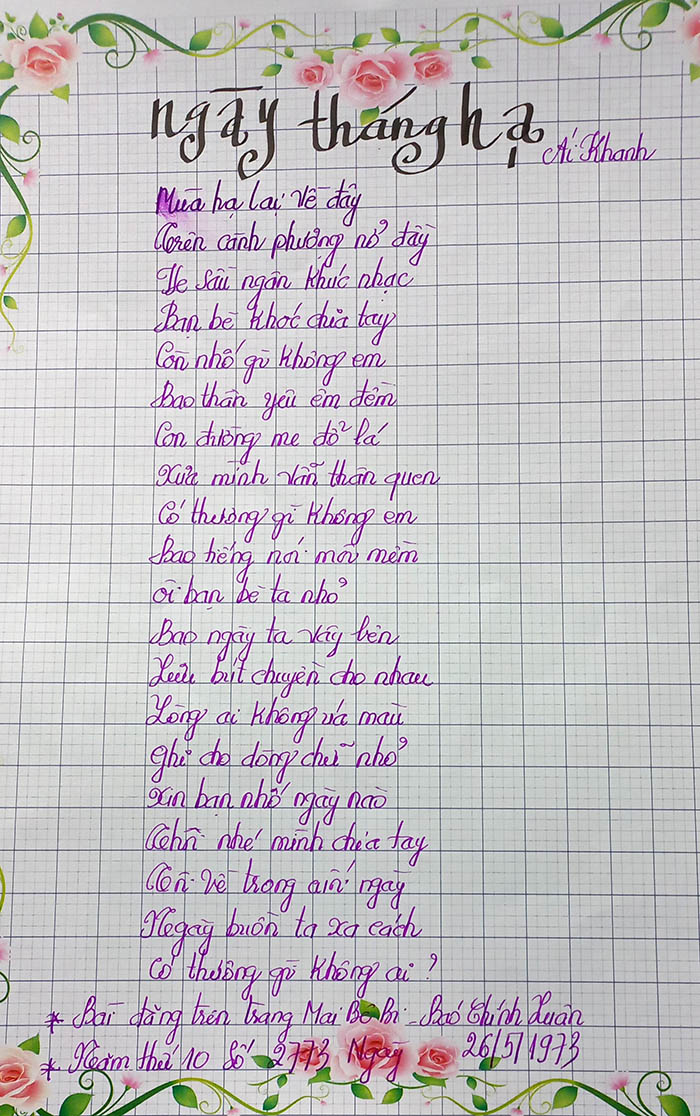 Ngày tháng hạ
Ái Khanh
Mùa hạ lại về đây
Trên cành phượng nở đầy
Ve sầu ngân khúc nhạc
Bạn bè khóc chia tay
Còn nhớ gì không em
Bao thân yêu êm đềm
Con đường me đổ lá
Xưa mình vẫn thân quen
Có thương gì không em
Bao tiếng nói môi mềm
Ơi bạn bè ta nhỏ
Bao ngày ta vây bên
Lưu bút chuyền cho nhau
Lòng ai không ứa máu
Ghi cho dòng chữ nhỏ
Xin bạn nhớ ngày nào
Thôi nhé mình chia tay
Còn về trong ngày
Ngày buồn ta xa cách
Có thương gì không ai?
* Bài đăng trên trang Mai Bê Bi - Báo Chính Luận
* Năm thứ 10 Số 2773 Ngày 26/5/1973